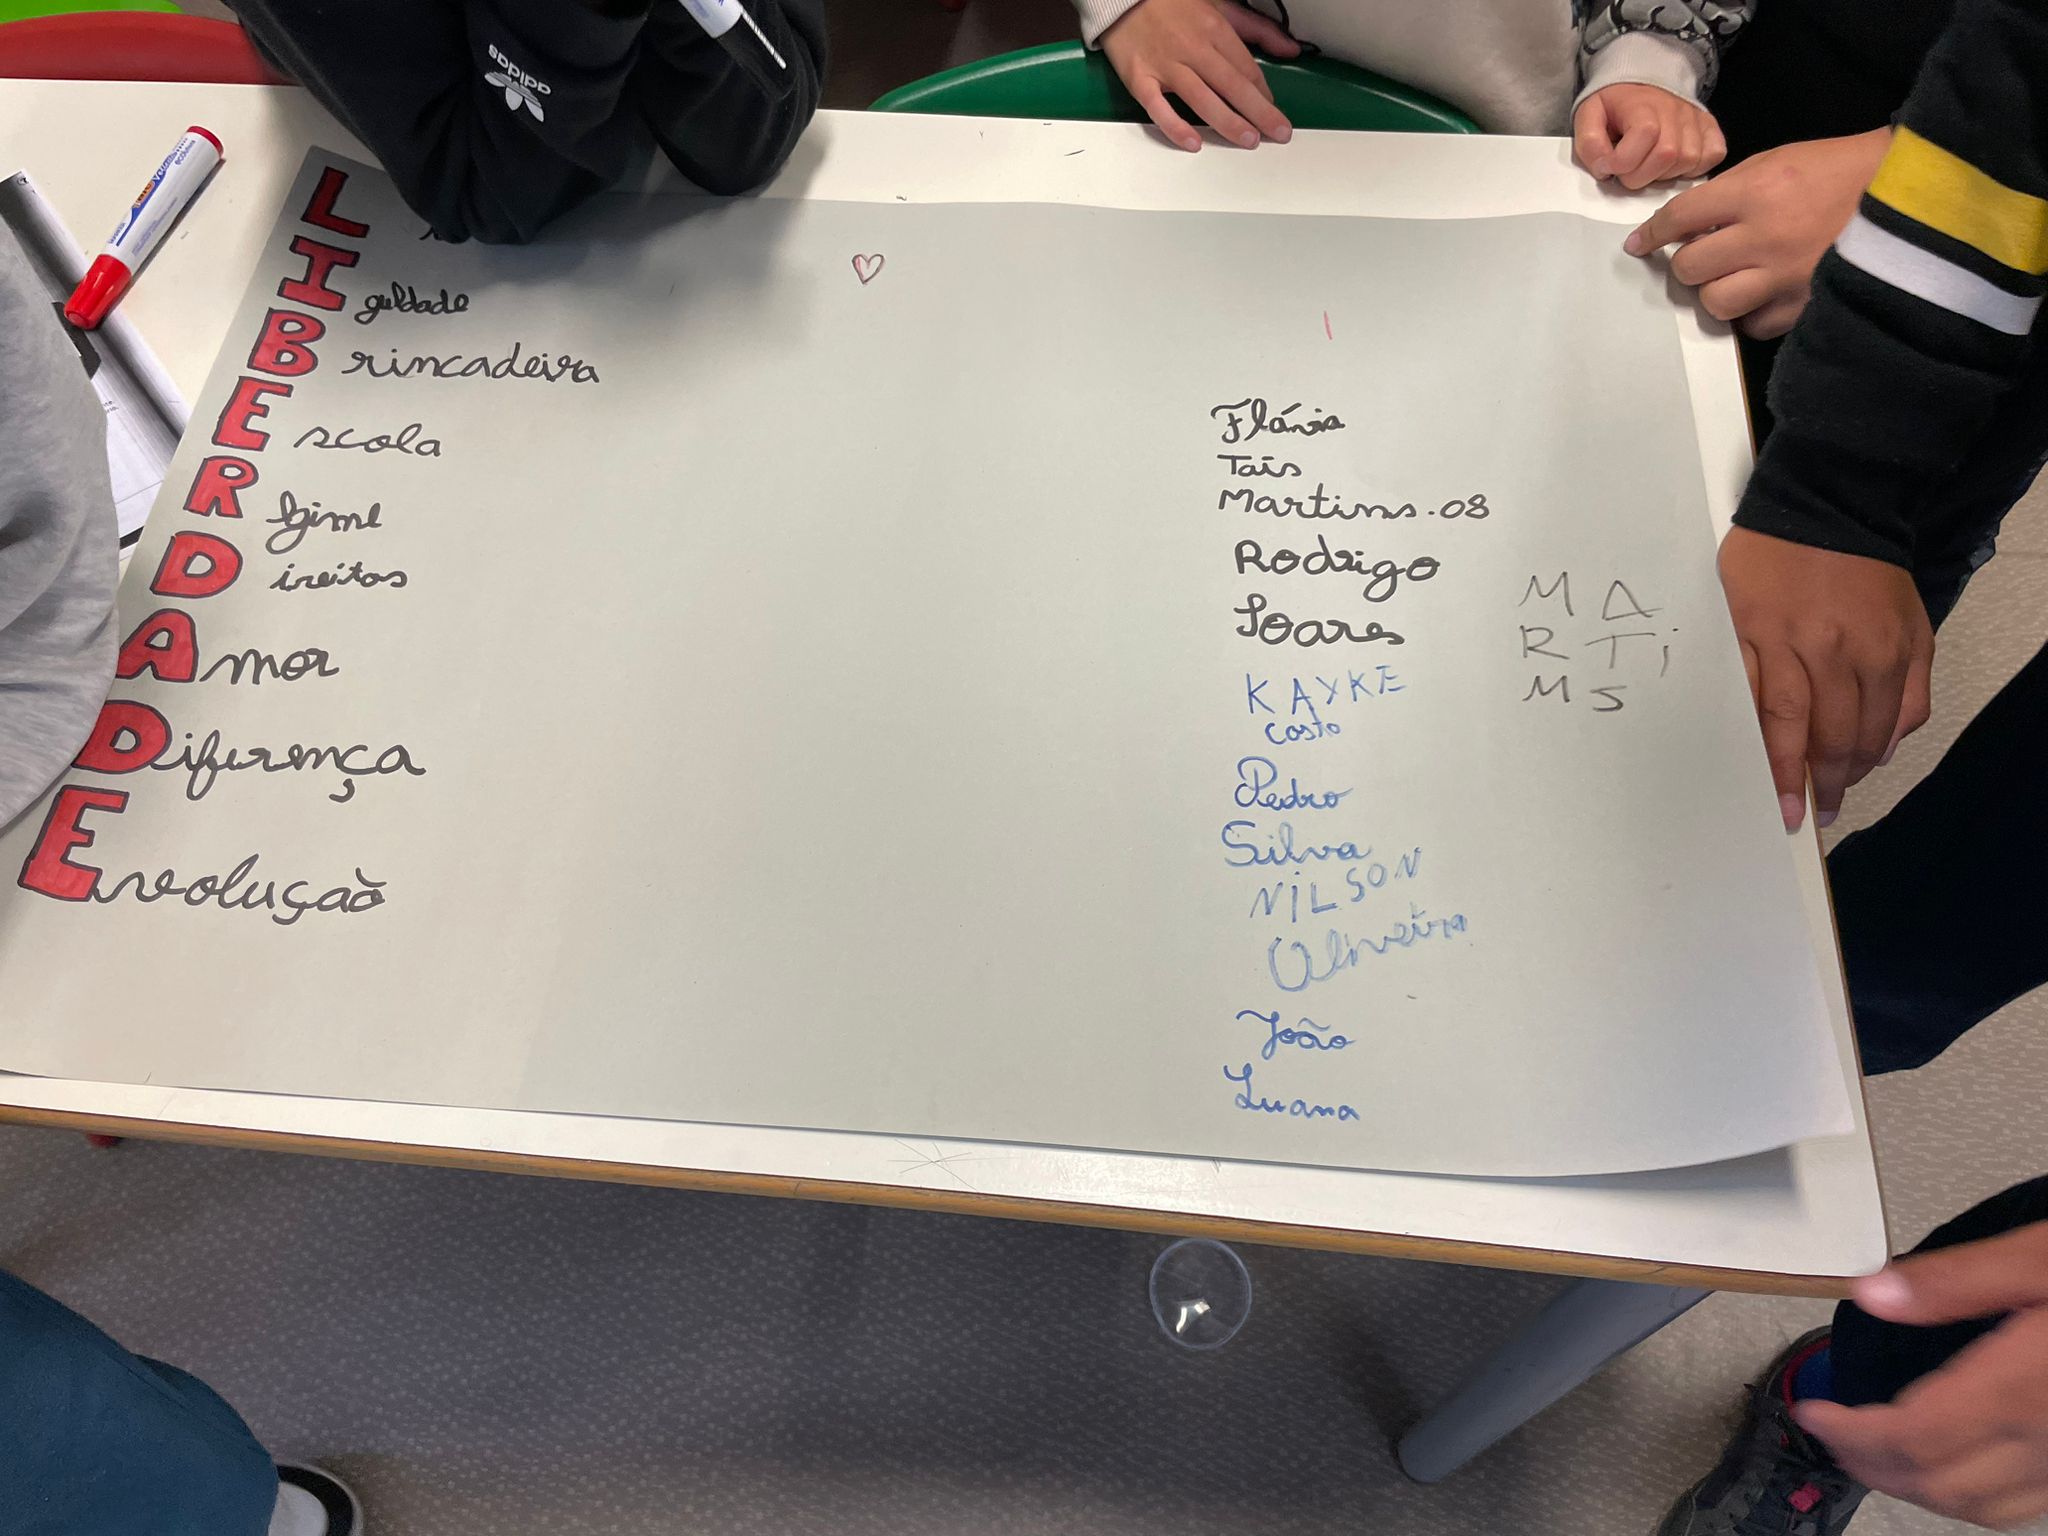 adidas
L
I gueldade
B rincadeira
E scola
R
D ireitos
Amor
Diferença
Envolução
Flávia
Tais
Martins.08
Rodrigo
Soares
KAYKE
Costa
Pedro
Silva
NiLSON
Oliveira
João
Luana
M A
R T i
N S